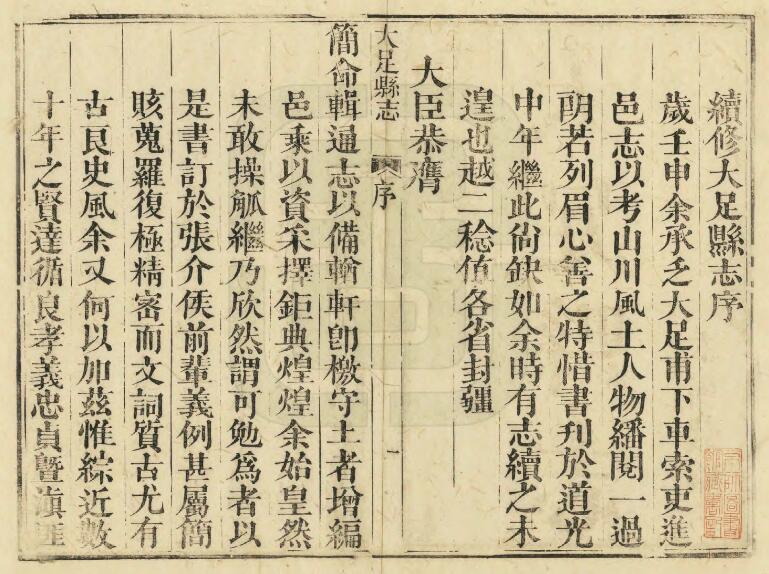 續修大足縣志序
歲壬申余承乏大足甫下車索吏進
邑志以考山川風土人物繙閱一過
朗若列眉心善之特惜書刋於道光
中年繼此尙缺如余時有志續之未
遑也越二稔值各省封疆
大臣恭膺
大足縣志 序 一
簡命輯通志以備輶軒卽檄守土者增編
邑乘以資采擇鉅典煌煌余始皇然
未敢操觚繼乃欣然謂可勉爲者以
是書訂於張介侯前輩義例甚屬簡
賅蒐羅復極精密而文詞質古尤有
古良史風余又何以加茲惟綜近數
十年之賢達循良孝義忠貞曁